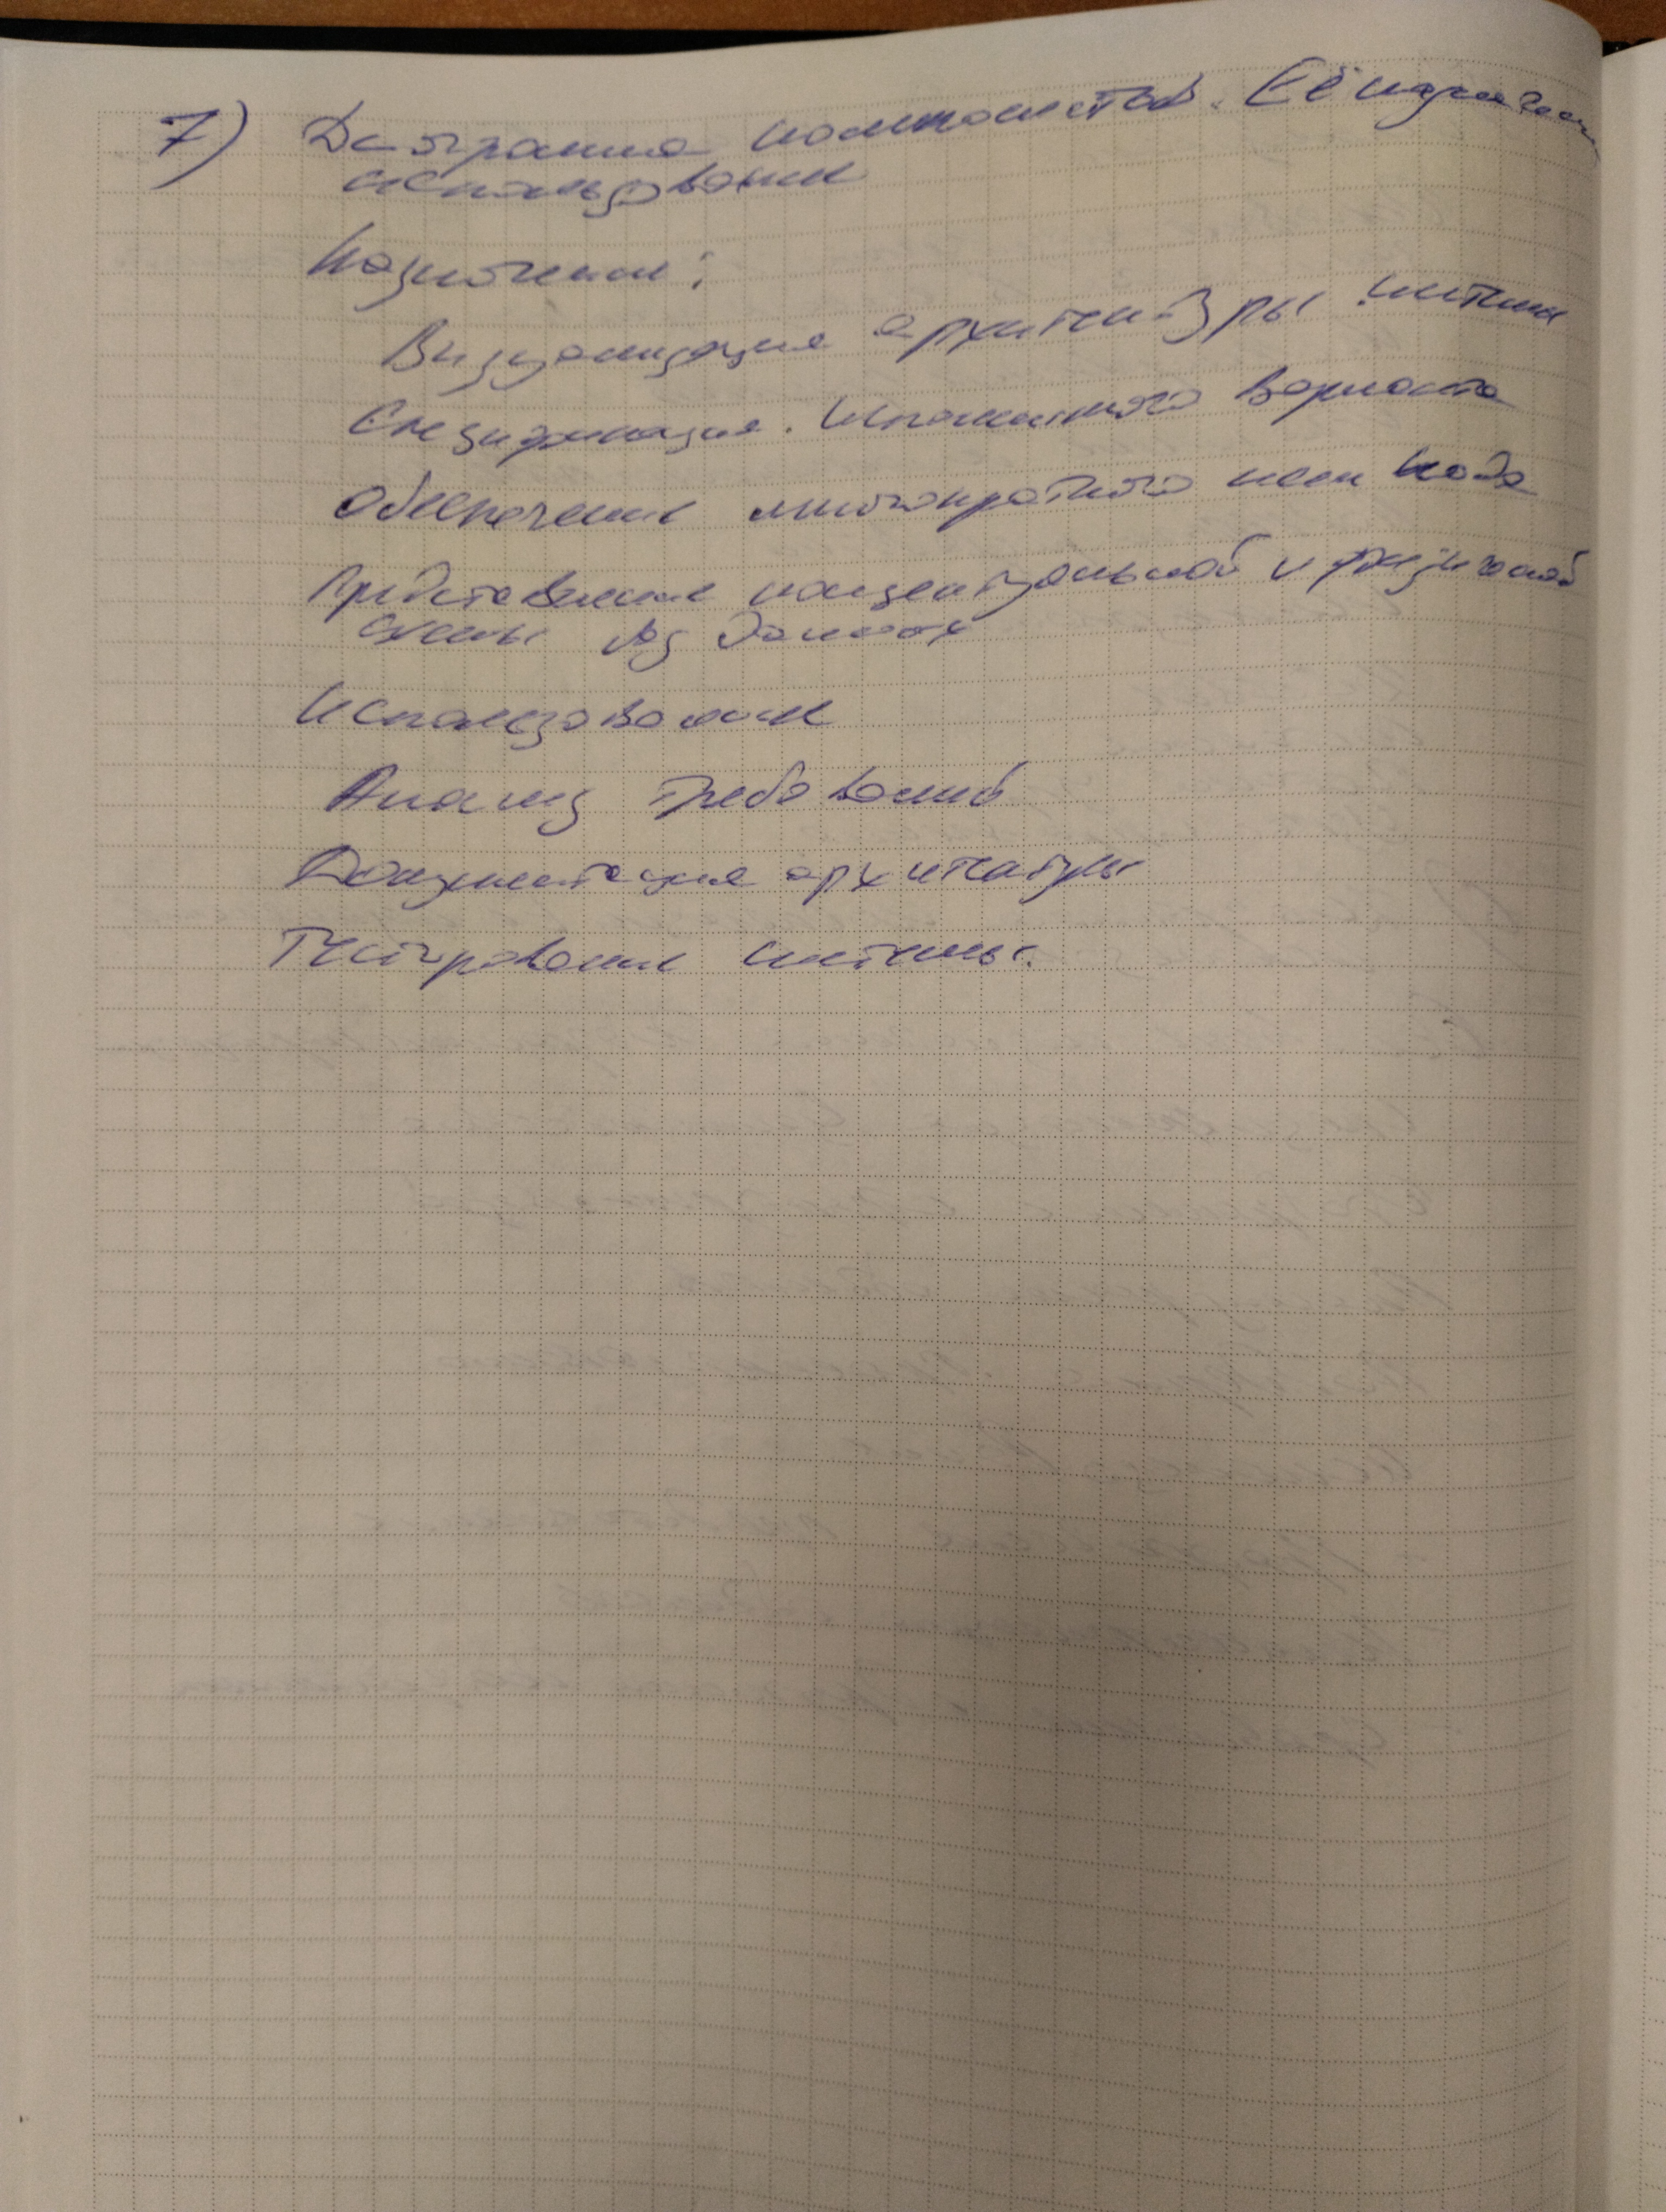 7) Диаграмма компонентов. Её назначение
использование
Назначение:
Визуализация архитектуры системы
Спецификация. Исполнимого варианта
Обеспечение многократного исп кода
Представление концептуальной и физической
схемы баз данных
Использование
Анализ требований
Документация архитектуры
Тестирование системы.